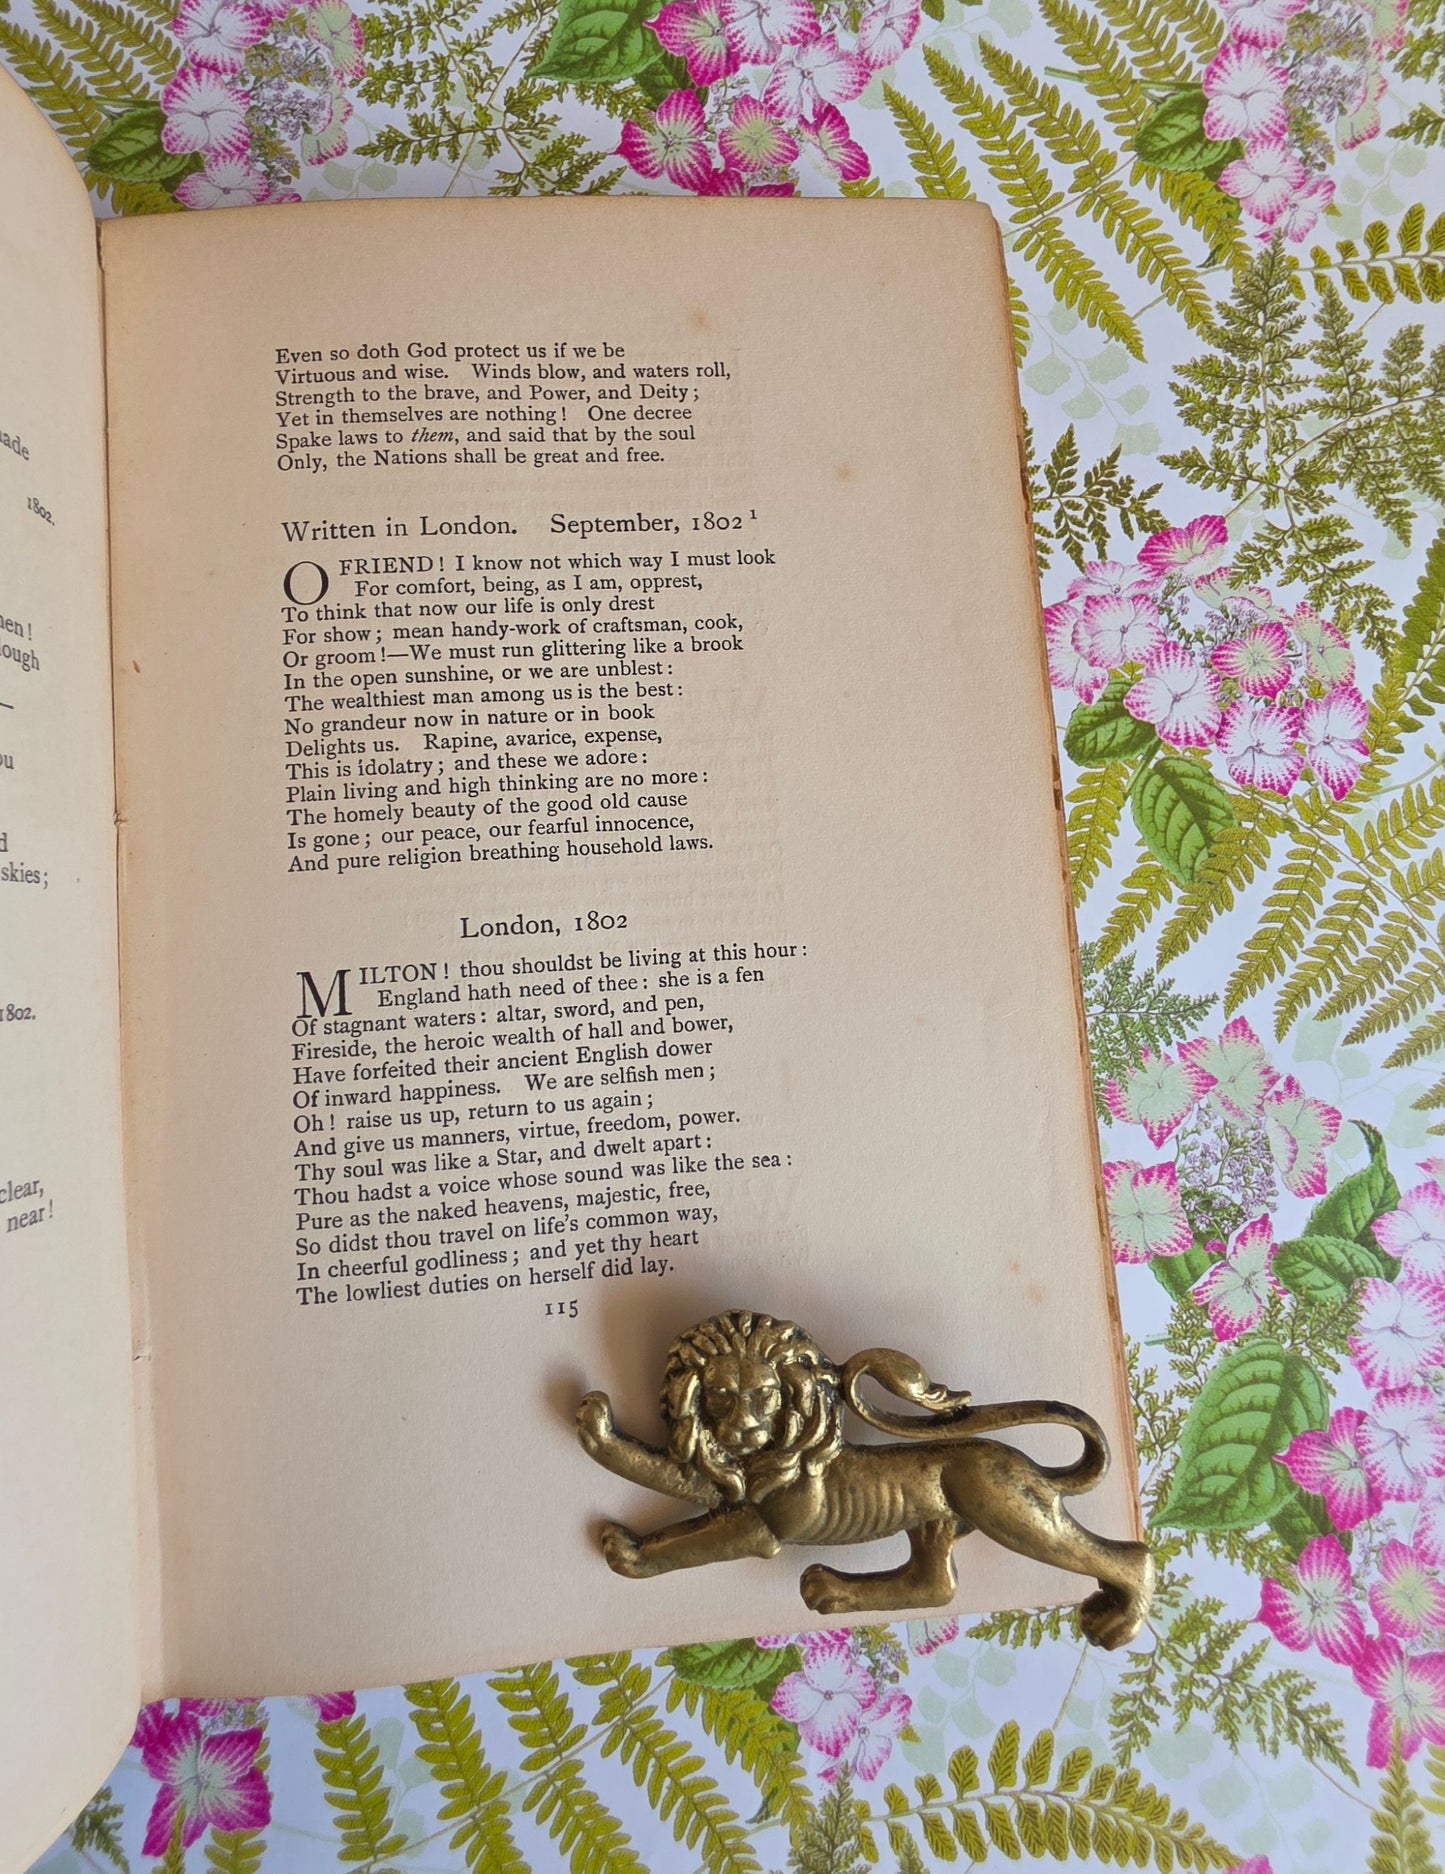 ade
1802.
en!
ough
ou
d
skies;
1802.
clear,
near!
Even so doth God protect us if we be
Virtuous and wise. Winds blow, and waters roll,
Strength to the brave, and Power, and Deity;
Yet in themselves are nothing! One decree
Spake laws to them, and said that by the soul
Only, the Nations shall be great and free.
Written in London. September, 1802 1
O FRIEND! I know not which way I must look
For comfort, being, as I am, opprest,
To think that now our life is only drest
For show; mean handy-work of craftsman, cook,
Or groom!—We must run glittering like a brook
In the open sunshine, or we are unblest:
The wealthiest man among us is the best:
No grandeur now in nature or in book
Delights us. Rapine, avarice, expense,
This is idolatry; and these we adore:
Plain living and high thinking are no more:
The homely beauty of the good old cause
Is gone; our peace, our fearful innocence,
And pure religion breathing household laws.
London, 1802
MILTON! thou shouldst be living at this hour:
England hath need of thee: she is a fen
Of stagnant waters: altar, sword, and pen,
Fireside, the heroic wealth of hall and bower,
Have forfeited their ancient English dower
Of inward happiness. We are selfish men;
Oh! raise us up, return to us again;
And give us manners, virtue, freedom, power.
Thy soul was like a Star, and dwelt apart:
Thou hadst a voice whose sound was like the sea:
Pure as the naked heavens, majestic, free,
So didst thou travel on life's common way,
In cheerful godliness; and yet thy heart
The lowliest duties on herself did lay.
115